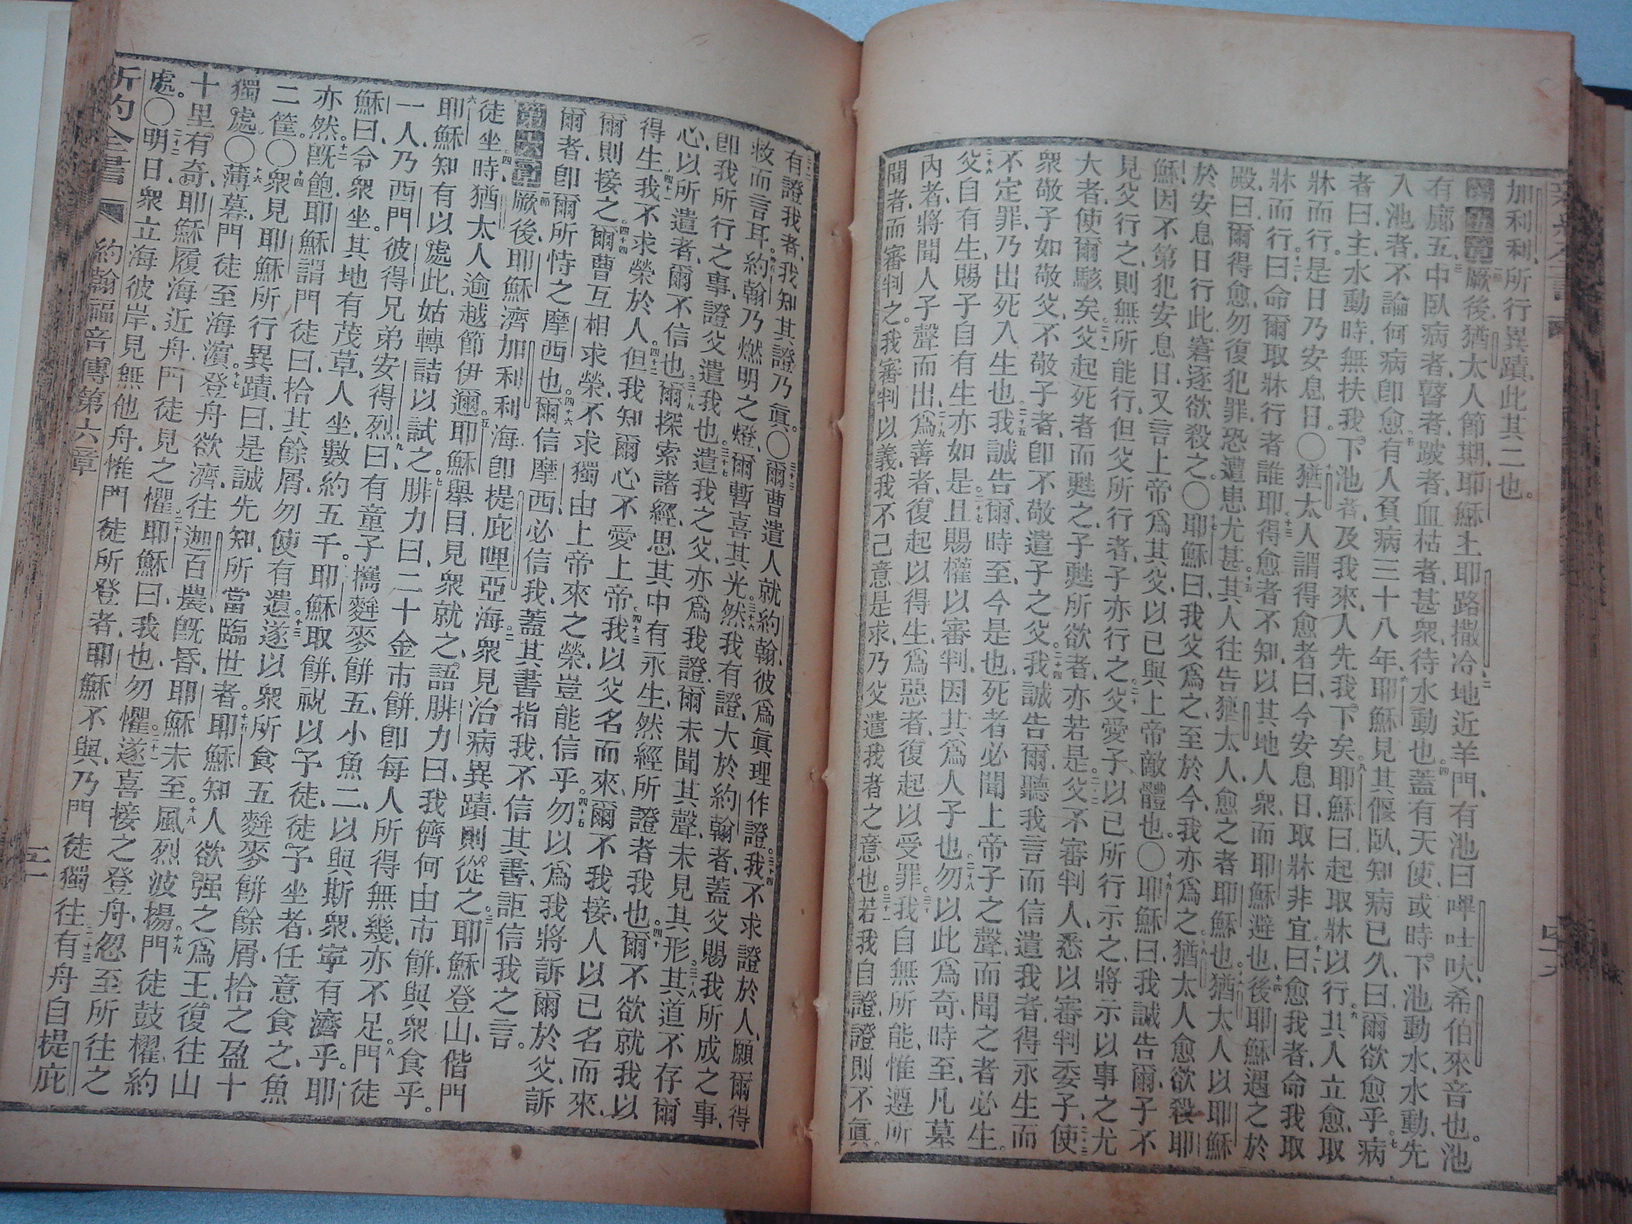 加利利、所行異蹟、此其二也。
厥後、猶太人節期、耶穌上耶路撒冷、地近羊門、有池曰嗶吐吠、希伯來音也、池
有廊五、中臥病者、瞽者、跛者、血枯者、甚衆、待水動也、蓋有天使、或時下池動水、水動、先
入池者、不論何病卽愈、有人負病三十八年、耶穌見其偃臥、知病已久、曰、爾欲愈乎、病
者曰、主、水動時、無扶我下池者、及我來、人先我下矣、耶穌曰、起、取牀以行、其人立愈、取
牀而行。是日乃安息日。〇猶太人謂得愈者曰、今安息日、取牀非宜、曰、愈我者、命我取
牀而行、曰、命爾取牀行者誰耶、得愈者不知、以其地人衆、而耶穌避也、後耶穌遇之於
殿、曰、爾得愈、勿復犯罪、恐遭患尤甚、其人往告猶太人、愈之者耶穌也、猶太人以耶穌
於安息日行此、窘逐欲殺之。〇耶穌曰、我父爲之至於今、我亦爲之、猶太人愈欲殺耶
穌、因不第犯安息日、又言上帝爲其父、以己與上帝敵體也。〇耶穌曰、我誠告爾、子不
見父行之、則無所能行、但父所行者、子亦行之、父愛子、以己所行示之、將示以事之尤
大者、使爾駭矣、父起死者而甦之、子甦所欲者亦若是、父不審判人、悉以審判委子、使
衆敬子如敬父、不敬子者、卽不敬遣子之父、我誠告爾、聽我言而信遣我者、得永生、而
不定罪、乃出死入生也、我誠告爾、時至、今是也、死者必聞上帝子之聲、而聞之者必生、
父自有生、賜子自有生亦如是、且賜權以審判、因其爲人子也、勿以此爲奇、時至、凡墓
內者、將聞人子聲而出、爲善者、復起以得生、爲惡者、復起以受罪、我自無所能、惟遵所
聞者而審判之、我審判以義、我不己意是求、乃父遣我者之意也、若我自證、證則不眞。
有證我者、我知其證乃眞。〇爾曹遣人就約翰、彼爲眞理作證、我不求證於人、願爾得
救而言耳、約翰乃燃明之燈、爾暫喜其光、然我有證、大於約翰者、蓋父賜我所成之事、
卽我所行之事、證父遣我也、遣我之父、亦爲我證、爾未聞其聲、未見其形、其道不存爾
心、以所遣者、爾不信也、爾探索諸經、思其中有永生、然經所證者我也、爾不欲就我以
得生、我不求榮於人、但我知爾心不愛上帝、我以父名而來、爾不我接、人以己名而來、
爾則接之、爾曹互相求榮、不求獨由上帝來之榮、豈能信乎、勿以爲我將訴爾於父、訴
爾者、卽爾所恃之摩西也、爾信摩西、必信我、蓋其書指我、不信其書、詎信我之言。
厥後、耶穌濟加利利海、卽提庇哩亞海、衆見治病異蹟、則從之、耶穌登山、偕門
徒坐、時猶太人逾越節伊邇、耶穌舉目、見衆就之、語腓力曰、我儕何由市餅、與衆食乎。
耶穌知有以處此、姑轉詰以試之、腓力曰、二十金市餅、卽每人所得無幾、亦不足、門徒
一人、乃西門彼得兄弟安得烈、曰、有童子攜麰麥餅五、小魚二、以與斯衆、寧有濟乎、耶
穌曰、令衆坐。其地有茂草、人坐、數約五千。耶穌取餅、祝以予徒、徒予坐者、任意食之、魚
亦然。旣飽、耶穌謂門徒曰、拾其餘屑、勿使有遺、遂以衆所食五麰麥餅餘屑、拾之盈十
二筐。〇衆見耶穌所行異蹟、曰、是誠先知、所當臨世者、耶穌知人欲强之爲王、復往山
獨處。〇薄暮、門徒至海濱、登舟欲濟、往迦百農、旣昏、耶穌未至、風烈波揚、門徒鼓櫂、約
十里有奇、耶穌履海近舟、門徒見之懼、耶穌曰、我也、勿懼、遂喜接之登舟、忽至所往之
處。〇明日、衆立海彼岸、見無他舟、惟門徒所登者、耶穌不與、乃門徒獨往、有舟自提庇
新約全書 約翰福音傳第六章